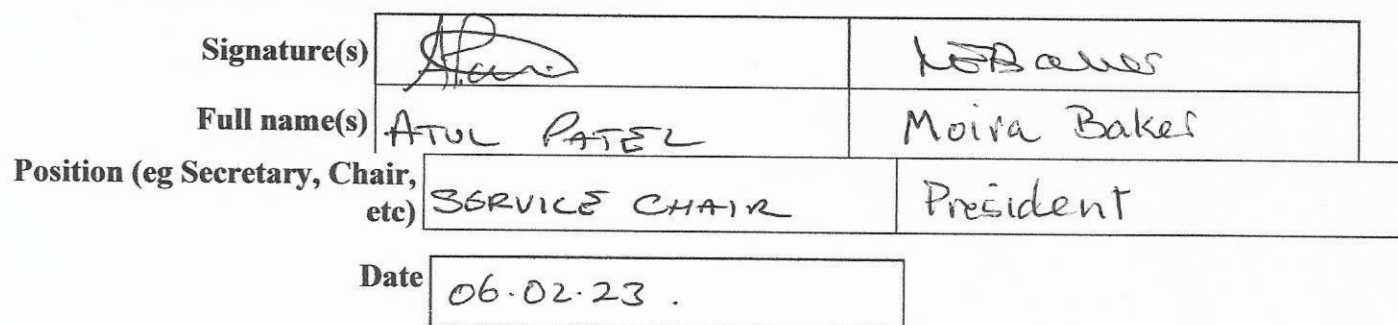 Signature(s)
Full name(s) ATUL PATEL Moira Baker
Position (eg Secretary, Chair,
etc) SERVICE CHAIR President
Date 06.02.23.